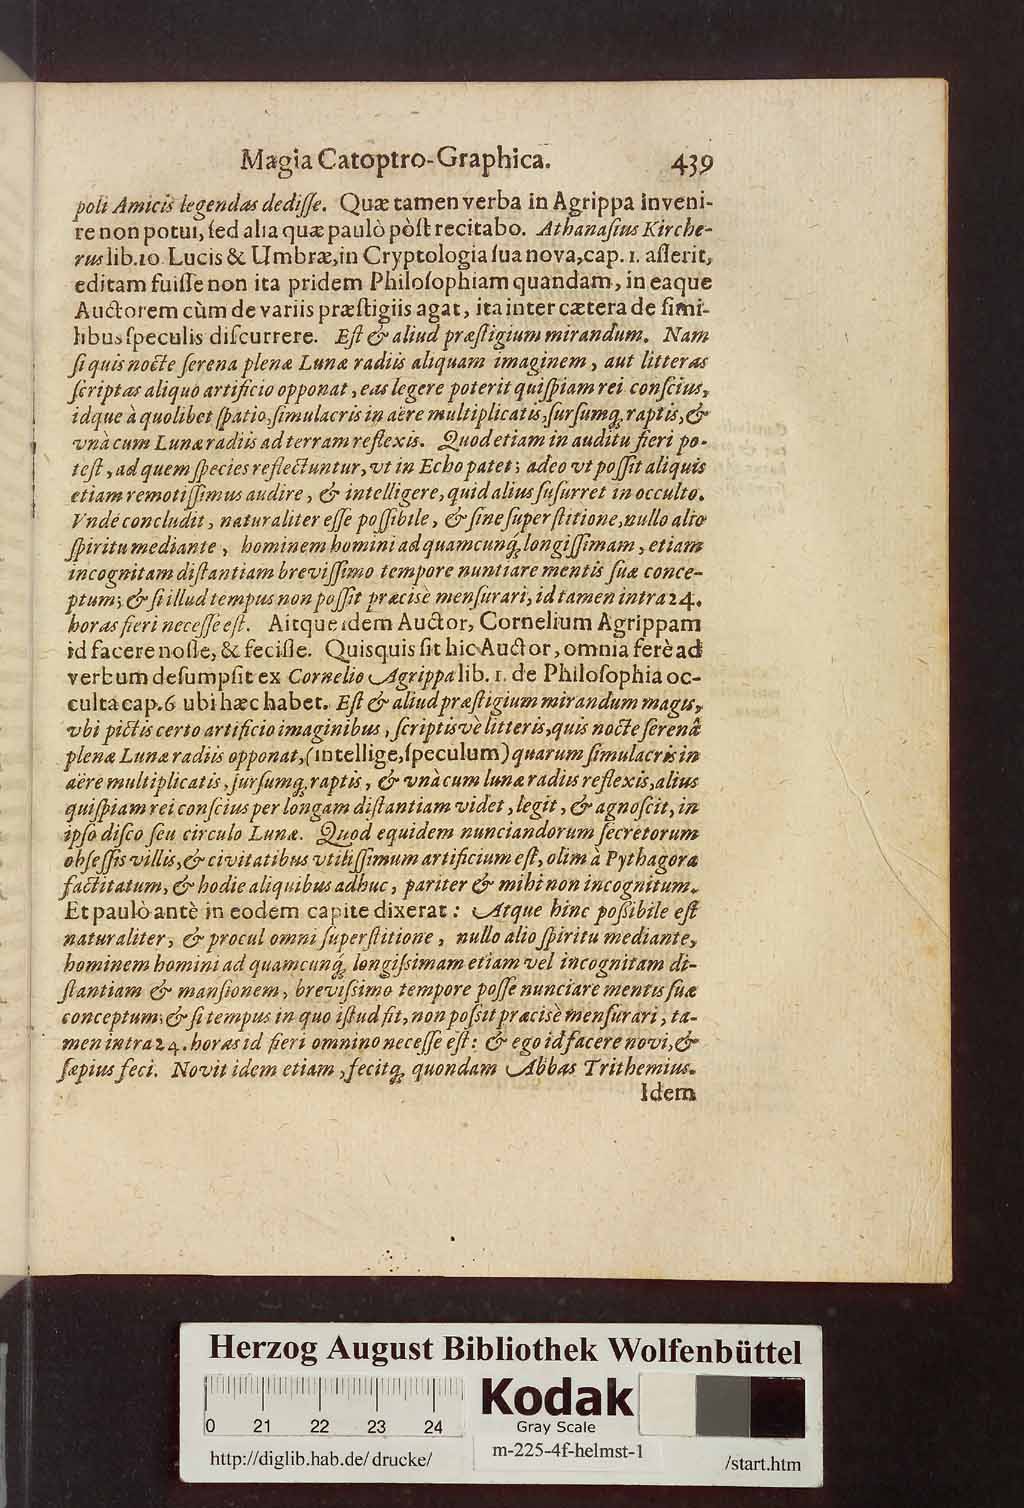 Magia Catoptro-Graphica. 439
poli Amicis legendas dediſſe. Quæ tamen verba in Agrippa inveni-
re non potui, ſed alia quæ paulò pòſt recitabo. Athanaſius Kirche-
rus lib.10. Lucis & Umbræ, in Cryptologia ſua nova, cap. 1. aſſerit,
editam fuiſſe non ita pridem Philoſophiam quandam, in eaque
Auctorem cùm de variis præſtigiis agat, ita inter cætera de ſimi-
libus ſpeculis diſcurrere. Eſt & aliud præſtigium mirandum. Nam
ſi quis nocte ſerena plenæ Lunæ radiis aliquam imaginem, aut litteras
ſcriptas aliquo artificio opponat, eas legere poterit quiſpiam rei conſcius,
idque à quolibet ſpatio, ſimulacris in aëre multiplicatis, ſurſumq́; raptis, &
vnà cum Lunæ radiis ad terram reflexis. Quod etiam in auditu fieri po-
teſt, ad quem ſpecies reflectuntur, vt in Echo patet; adeo vt poſſit aliquis
etiam remotiſſimus audire, & intelligere, quid alius ſuſurret in occulto.
Vnde concludit, naturaliter eſſe poſſibile, & ſine ſuperſtitione, nullo alio
ſpiritu mediante, hominem homini ad quamcunq́; longiſſimam, etiam
incognitam diſtantiam breviſſimo tempore nuntiare mentis ſuæ conce-
ptum; & ſi illud tempus non poſſit præcisè menſurari, id tamen intra 24.
horas fieri neceſſe eſt. Aitque idem Auctor, Cornelium Agrippam
id facere noſſe, & feciſſe. Quisquis ſit hic Auctor, omnia ferè ad
verbum deſumpſit ex Cornelio Agrippa lib. 1. de Philoſophia oc-
culta cap. 6 ubi hæc habet. Eſt & aliud præſtigium mirandum magis,
vbi pictis certo artificio imaginibus, ſcriptisvè litteris, quis nocte ſerenâ
plenæ Lunæ radiis opponat, (intellige, ſpeculum) quarum ſimulacris in
aëre multiplicatis, ſurſumq́; raptis, & vnà cum lunæ radiis reflexis, alius
quiſpiam rei conſcius per longam diſtantiam videt, legit, & agnoſcit, in
ipſo diſco ſeu circulo Lunæ. Quod equidem nunciandorum ſecretorum
obſeſſis villis, & civitatibus vtiliſſimum artificium eſt, olim à Pythagora
factitatum, & hodie aliquibus adhuc, pariter & mihi non incognitum.
Et paulò antè in eodem capite dixerat: Atque hinc poſſibile eſt
naturaliter, & procul omni ſuperſtitione, nullo alio ſpiritu mediante,
hominem homini ad quamcunq́; longiſsimam etiam vel incognitam di-
ſtantiam & manſionem, breviſsimo tempore poſſe nunciare mentis ſuæ
conceptum; & ſi tempus in quo iſtud fit, non poſsit præcisè menſurari, ta-
men intra 24. horas id fieri omnino neceſſe eſt: & ego id facere novi, &
ſæpius feci. Novit idem etiam, fecitq́; quondam Abbas Trithemius.
Idem
Herzog August Bibliothek Wolfenbüttel
0 21 22 23 24
Kodak
Gray Scale
http://diglib.hab.de/drucke/
m-225-4f-helmst-1
/start.htm